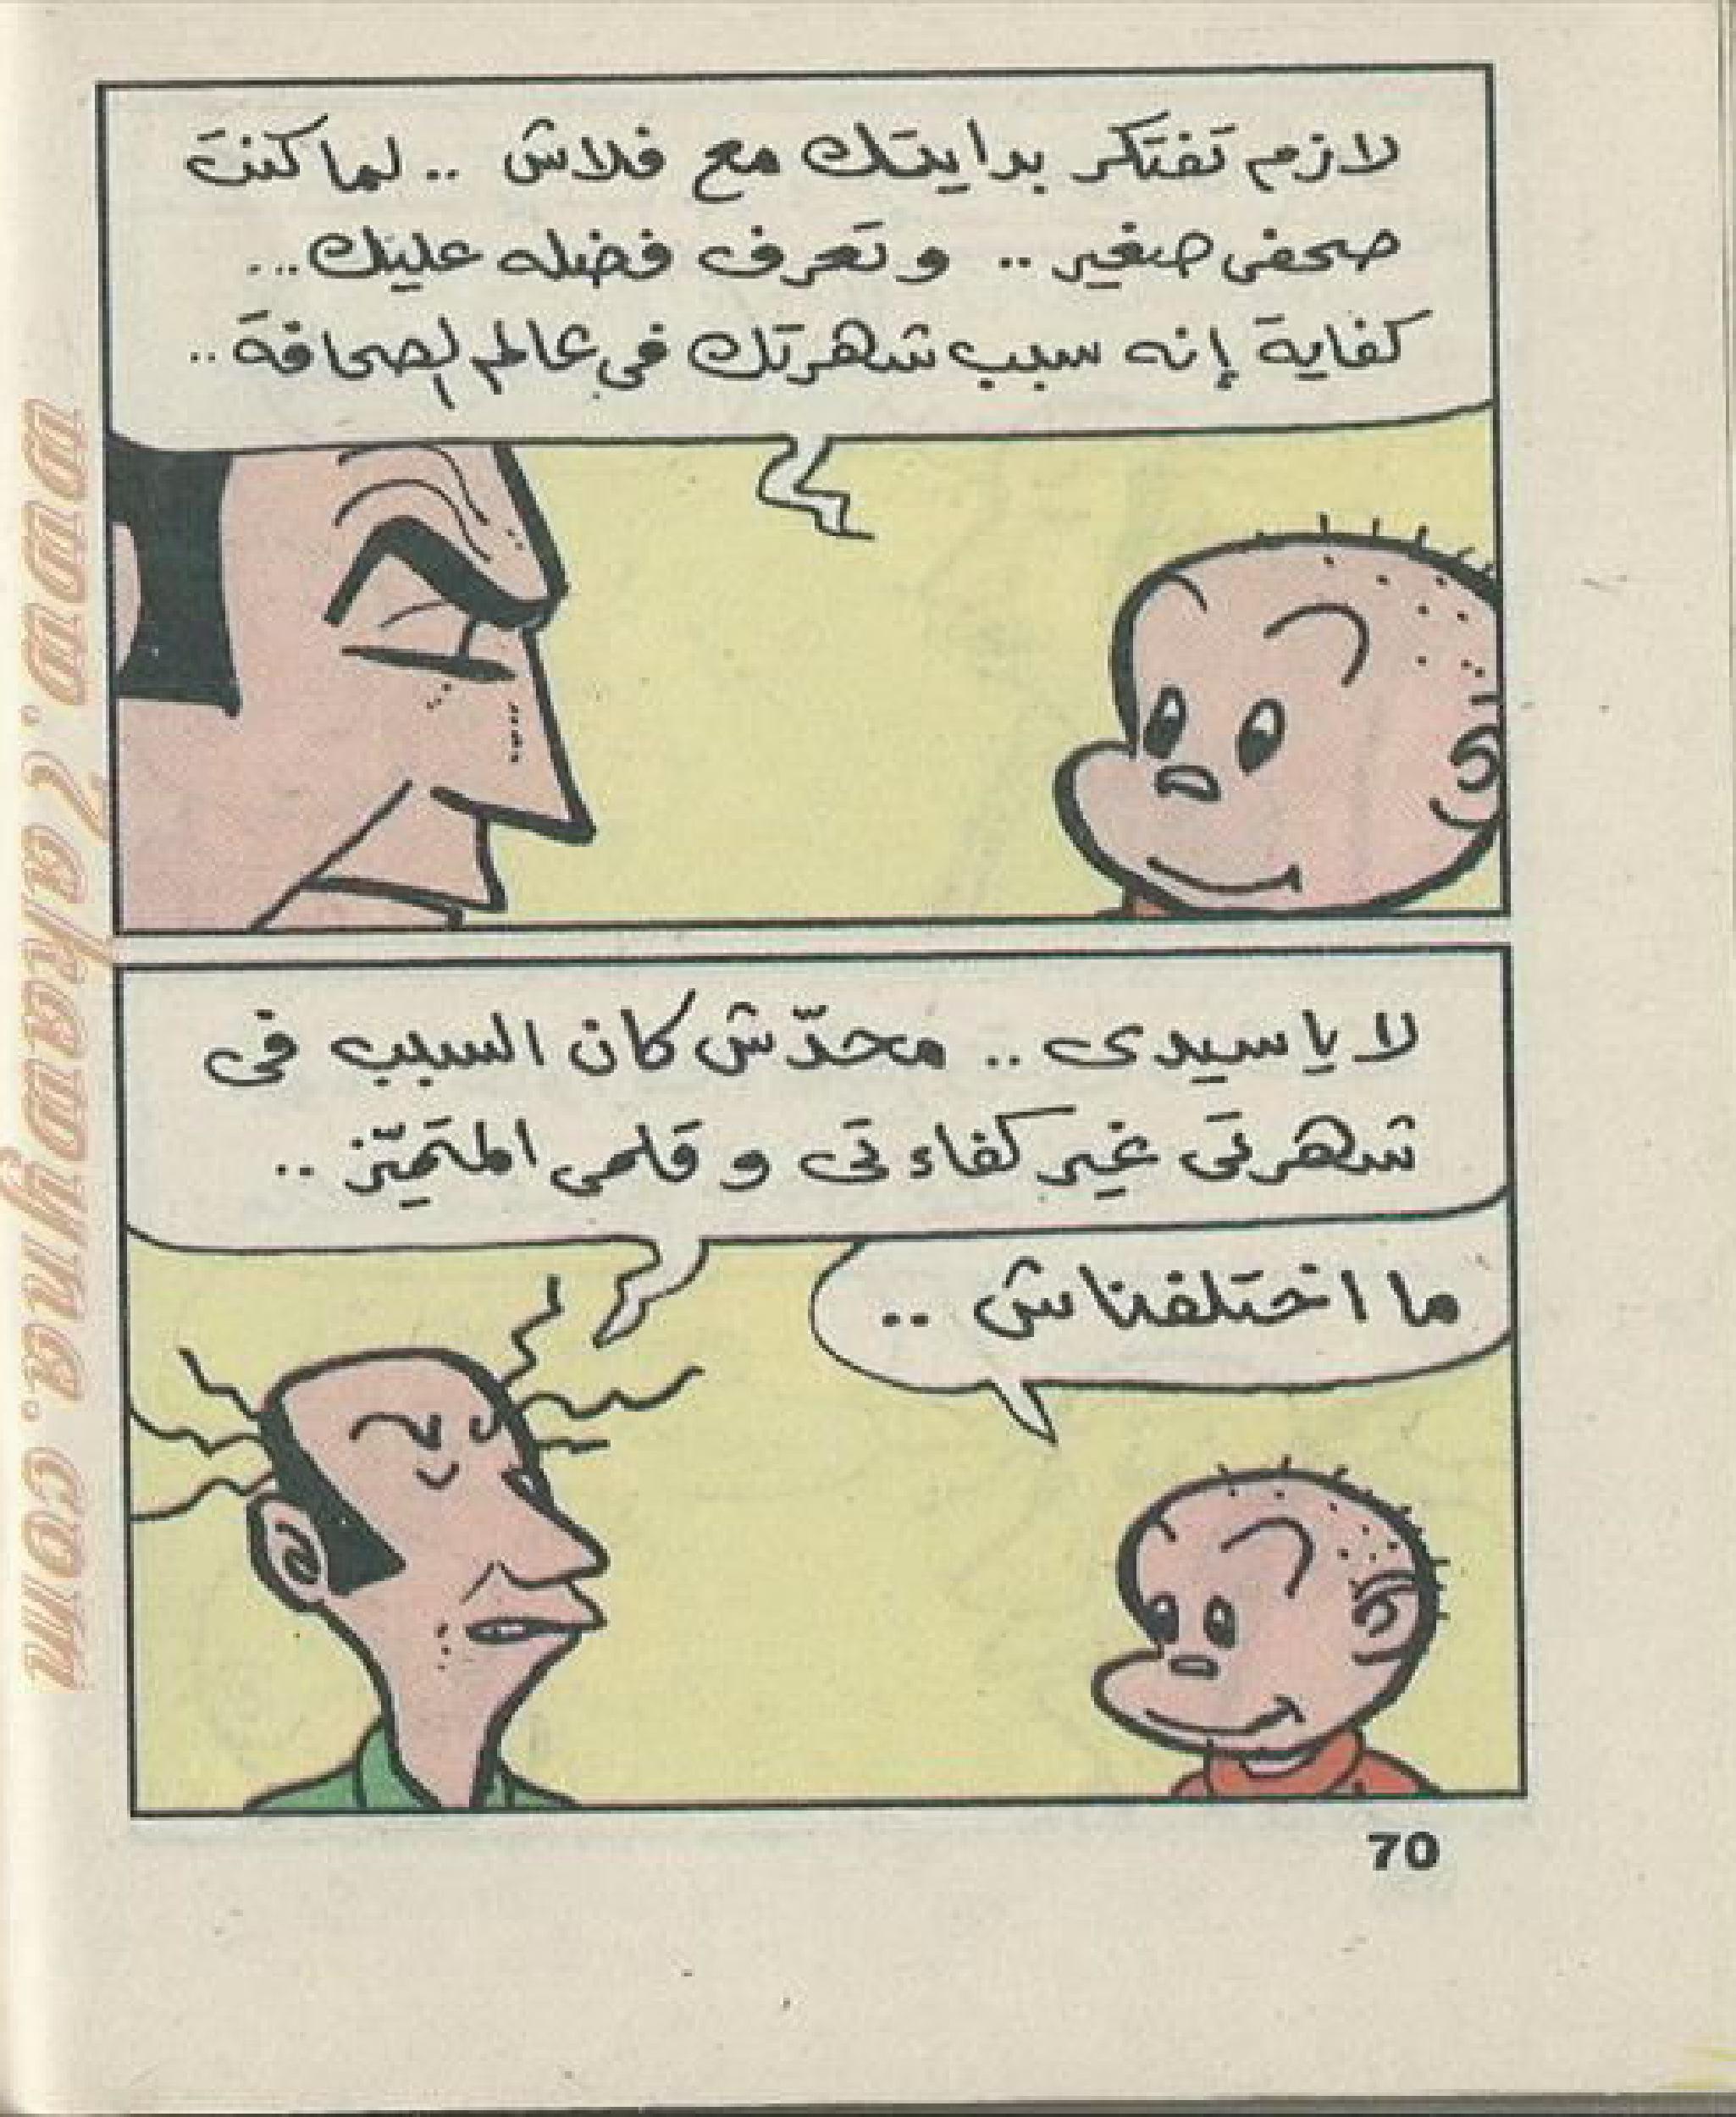 لازم تفتكر بدايتك مع فلاش .. لما كنت
صحفى صغير .. و تعرف فضله عليك ...
كفاية إنه سبب شهرتك فى عالم الصحافة ..
لا يا سيدى .. محدّش كان السبب فى
شهرتى غير كفاءتى و قلمى المتميّز ..
ما اختلفناش ..
70
www.Zahadyna.com